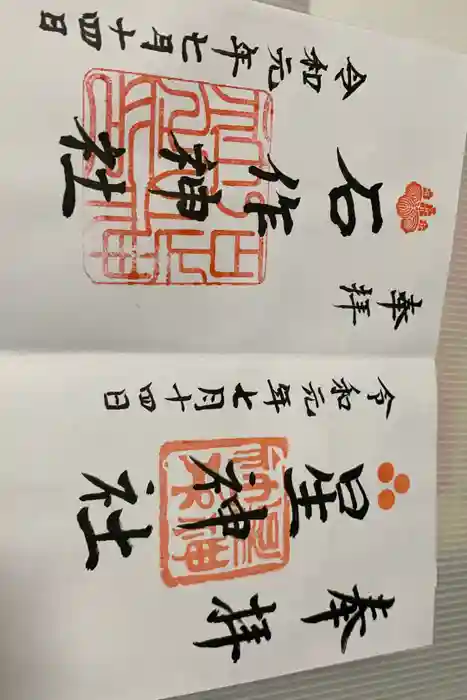 奉拝
星神社
令和元年七月十四日
奉拝
石作神社
令和元年七月十四日